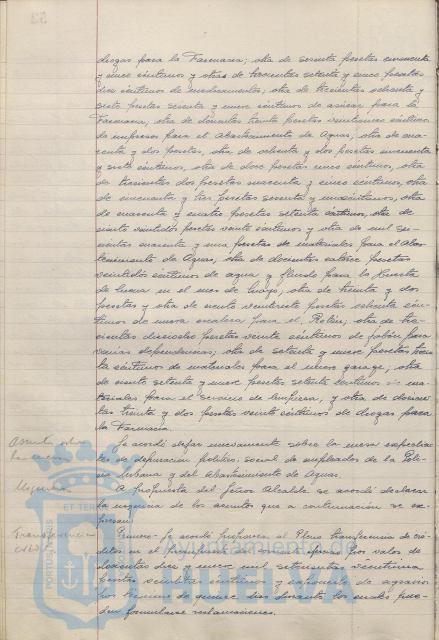 drogas para la Farmacia; otra de sesenta pesetas cincuenta
y cinco céntimos y otras de trescientas setenta y cinco pesetas
céntimos de medicamentos, otra de trescientas ochenta y
siete pesetas sesenta y nueve céntimos de azúcar para la
Farmacia, otra de doscientas treinta pesetas veinticinco céntimos
de impresos para el Abastecimiento de Aguas; otra de cua-
renta y dos pesetas, otra de ochenta y dos pesetas cincuenta
y siete céntimos, otra de doce pesetas cinco céntimos, otra
de trescientas dos pesetas cuarenta y cinco céntimos, otra
de cincuenta y tres pesetas sesenta y céntimos, otra
de cuarenta y cuatro pesetas setenta céntimos, otra de
ciento veintidós pesetas veinte céntimos y otra de mil se-
cuarenta y una pesetas de materiales para el Abas-
tecimiento de Aguas, otra de doscientas catorce pesetas
veintidós céntimos de agua y fluido para la
en el mes de Mayo, otra de treinta y dos
pesetas y otra de ciento veintisiete pesetas ochenta cén-
timos de nueva escalera para el Reloj; otra de tres-
cientas dieciocho pesetas veinte céntimos de jabón para
varias dependencias; otra de setenta y nueve pesetas trein-
ta céntimos de materiales para el nuevo garage; otra
de ciento setenta y nueve pesetas setenta céntimos de ma-
teriales para el servicio de limpieza, y otra de doscien-
tas treinta y dos pesetas veinte céntimos de drogas para
la Farmacia.
Asunto sobre Se acordó dejar nuevamente sobre la mesa expedien-
la mesa te de depuración político social de empleados de la Poli-
Urbana y del Abastecimiento de Aguas.
Urgencia A propuesta del Señor Alcalde se acordó declarar
la urgencia de los asuntos que a continuación se ex-
presan:
Transferencia Primero: Se acordó proponer al Pleno transferencia de cré-
ditos en el presupuesto por valor de
doscientas diez y nueve mil setecientas veintiuna
pesetas céntimos y de agravios
por término de quince días durante los cuales pue-
den formularse reclamaciones.
Ayuntamiento de
HUELVA
PORTUS MARIS ET TERRAE